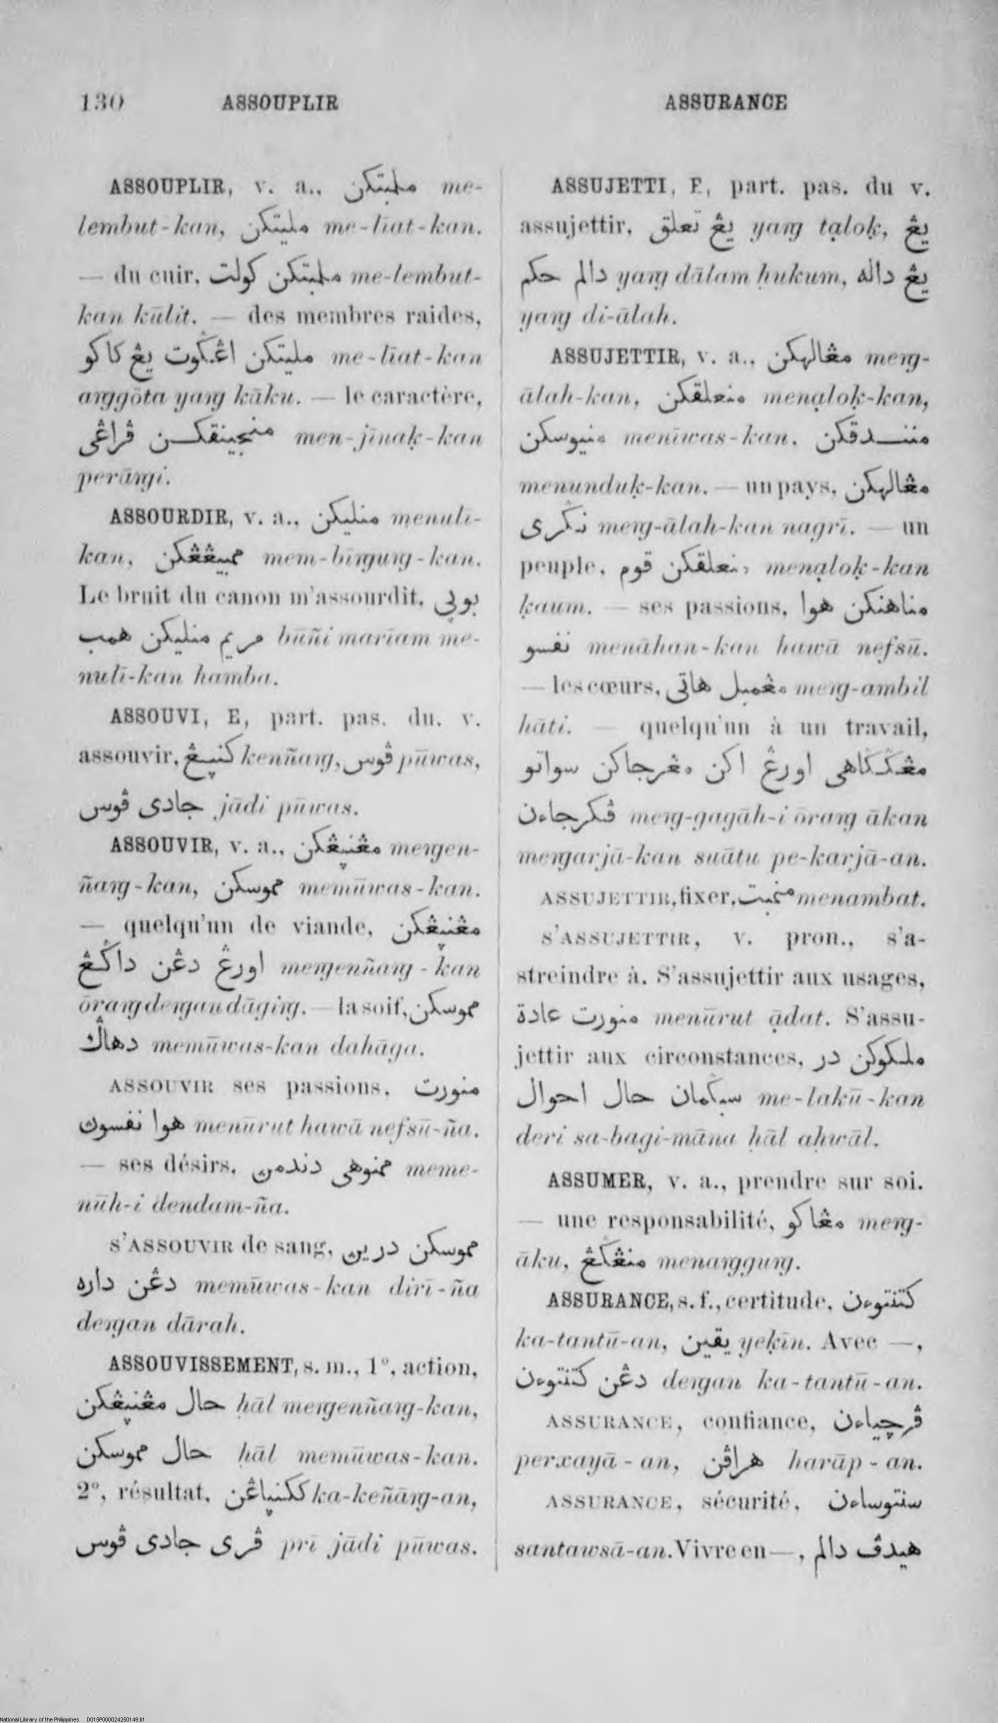 130 ASSOUPLIR ASSURANCE
ASSOUPLIR, v. a., ملمبتكن me-
lembut-kan, مليتكن me-līat-kan.
— du cuir, ملمبتكن كولت me-lembut-
kan kūlit. — des membres raides,
مليتكن اڠݢوت يڠ كاكو me-līat-kan
arggōta yarg kāku. — le caractère,
منجينقكن ڤراڠي men-jīnaḳ-kan
perārgi.
ASSOURDIR, v. a., منليكن menulī-
kan, ممبيڠڠكن mem-bīrgurg-kan.
Le bruit du canon m'assourdit, بوپي
مريم منليكن همب būñi marīam me-
nulī-kan hamba.
ASSOUVI, E, part. pas. du. v.
assouvir, كنڽڠ kenñarg, ڤوس pūwas,
جادي ڤوس jādi pūwas.
ASSOUVIR, v. a., مڠنڽڠكن mergen-
ñarg-kan, مموسكن memūwas-kan.
— quelqu'un de viande, مڠنڽڠكن
اورڠ دڠن داݢڠ mergenñarg-kan
ōrarg dergan dāgirg. — la soif, مموسكن
دهاݢ memūwas-kan dahāga.
ASSOUVIR ses passions, منورت
هوا نفسوڽ menūrut hawā nefsū-ña.
— ses désirs, ممنوهي دندمڽ meme-
nūh-i dendam-ña.
S'ASSOUVIR de sang, مموسكن دريڽ
دڠن داره memūwas-kan dirī-ña
dergan dārah.
ASSOUVISSEMENT, s. m., 1°, action,
حال مڠنڽڠكن hāl mergenñarg-kan,
حال مموسكن hāl memūwas-kan.
2°, résultat, ككنڽاڠن ka-keñārg-an,
ڤري جادي ڤوس prī jādi pūwas.
ASSUJETTI, E, part. pas. du v.
assujettir, يڠ تعلق yarg tạloḳ, يڠ
دالم حكم yarg dālam ḥukum, يڠ داله
yarg di-ālah.
ASSUJETTIR, v. a., مڠالهكن merg-
ālah-kan, منعلقكن menạloḳ-kan,
منيوسكن menīwas-kan, مننـدقكن
menunduḳ-kan. — un pays, مڠالهكن
نݢري merg-ālah-kan nagrī. — un
peuple, منعلقكن قوم menạloḳ-kan
ḳaum. — ses passions, مناهنكن هوا
نفسو menāhan-kan hawā nefsū.
— les cœurs, مڠمبل هاتي merg-ambil
hāti. — quelqu'un à un travail,
مڠݢݢاهي اورڠ اكن مڠرجاكن سواتو
ڤكرجاءن merg-gagāh-i ōrarg ākan
mergarjā-kan suātu pe-karjā-an.
ASSUJETTIR, fixer, منمبت menambat.
S'ASSUJETTIR, v. pron., s'a-
streindre à. S'assujettir aux usages,
منورت عادة menūrut ạ̄dat. S'assu-
jettir aux circonstances, ملكوكن در
سبݢمان حال احوال me-lakū-kan
deri sa-bagi-māna ḥāl aḥwāl.
ASSUMER, v. a., prendre sur soi.
— une responsabilité, مڠاكو merg-
āku, منڠݢڠ menarggurg.
ASSURANCE, s. f., certitude, كتنتوءن
ka-tantū-an, يقين yeḳīn. Avec —,
دڠن كتنتوءن dergan ka-tantū-an.
ASSURANCE, confiance, ڤرچياءن
perxayā-an, هراڤن harāp-an.
ASSURANCE, sécurité, سنتوساءن
santawsā-an. Vivre en —, هيدڤ دالم
National Library of the Philippines